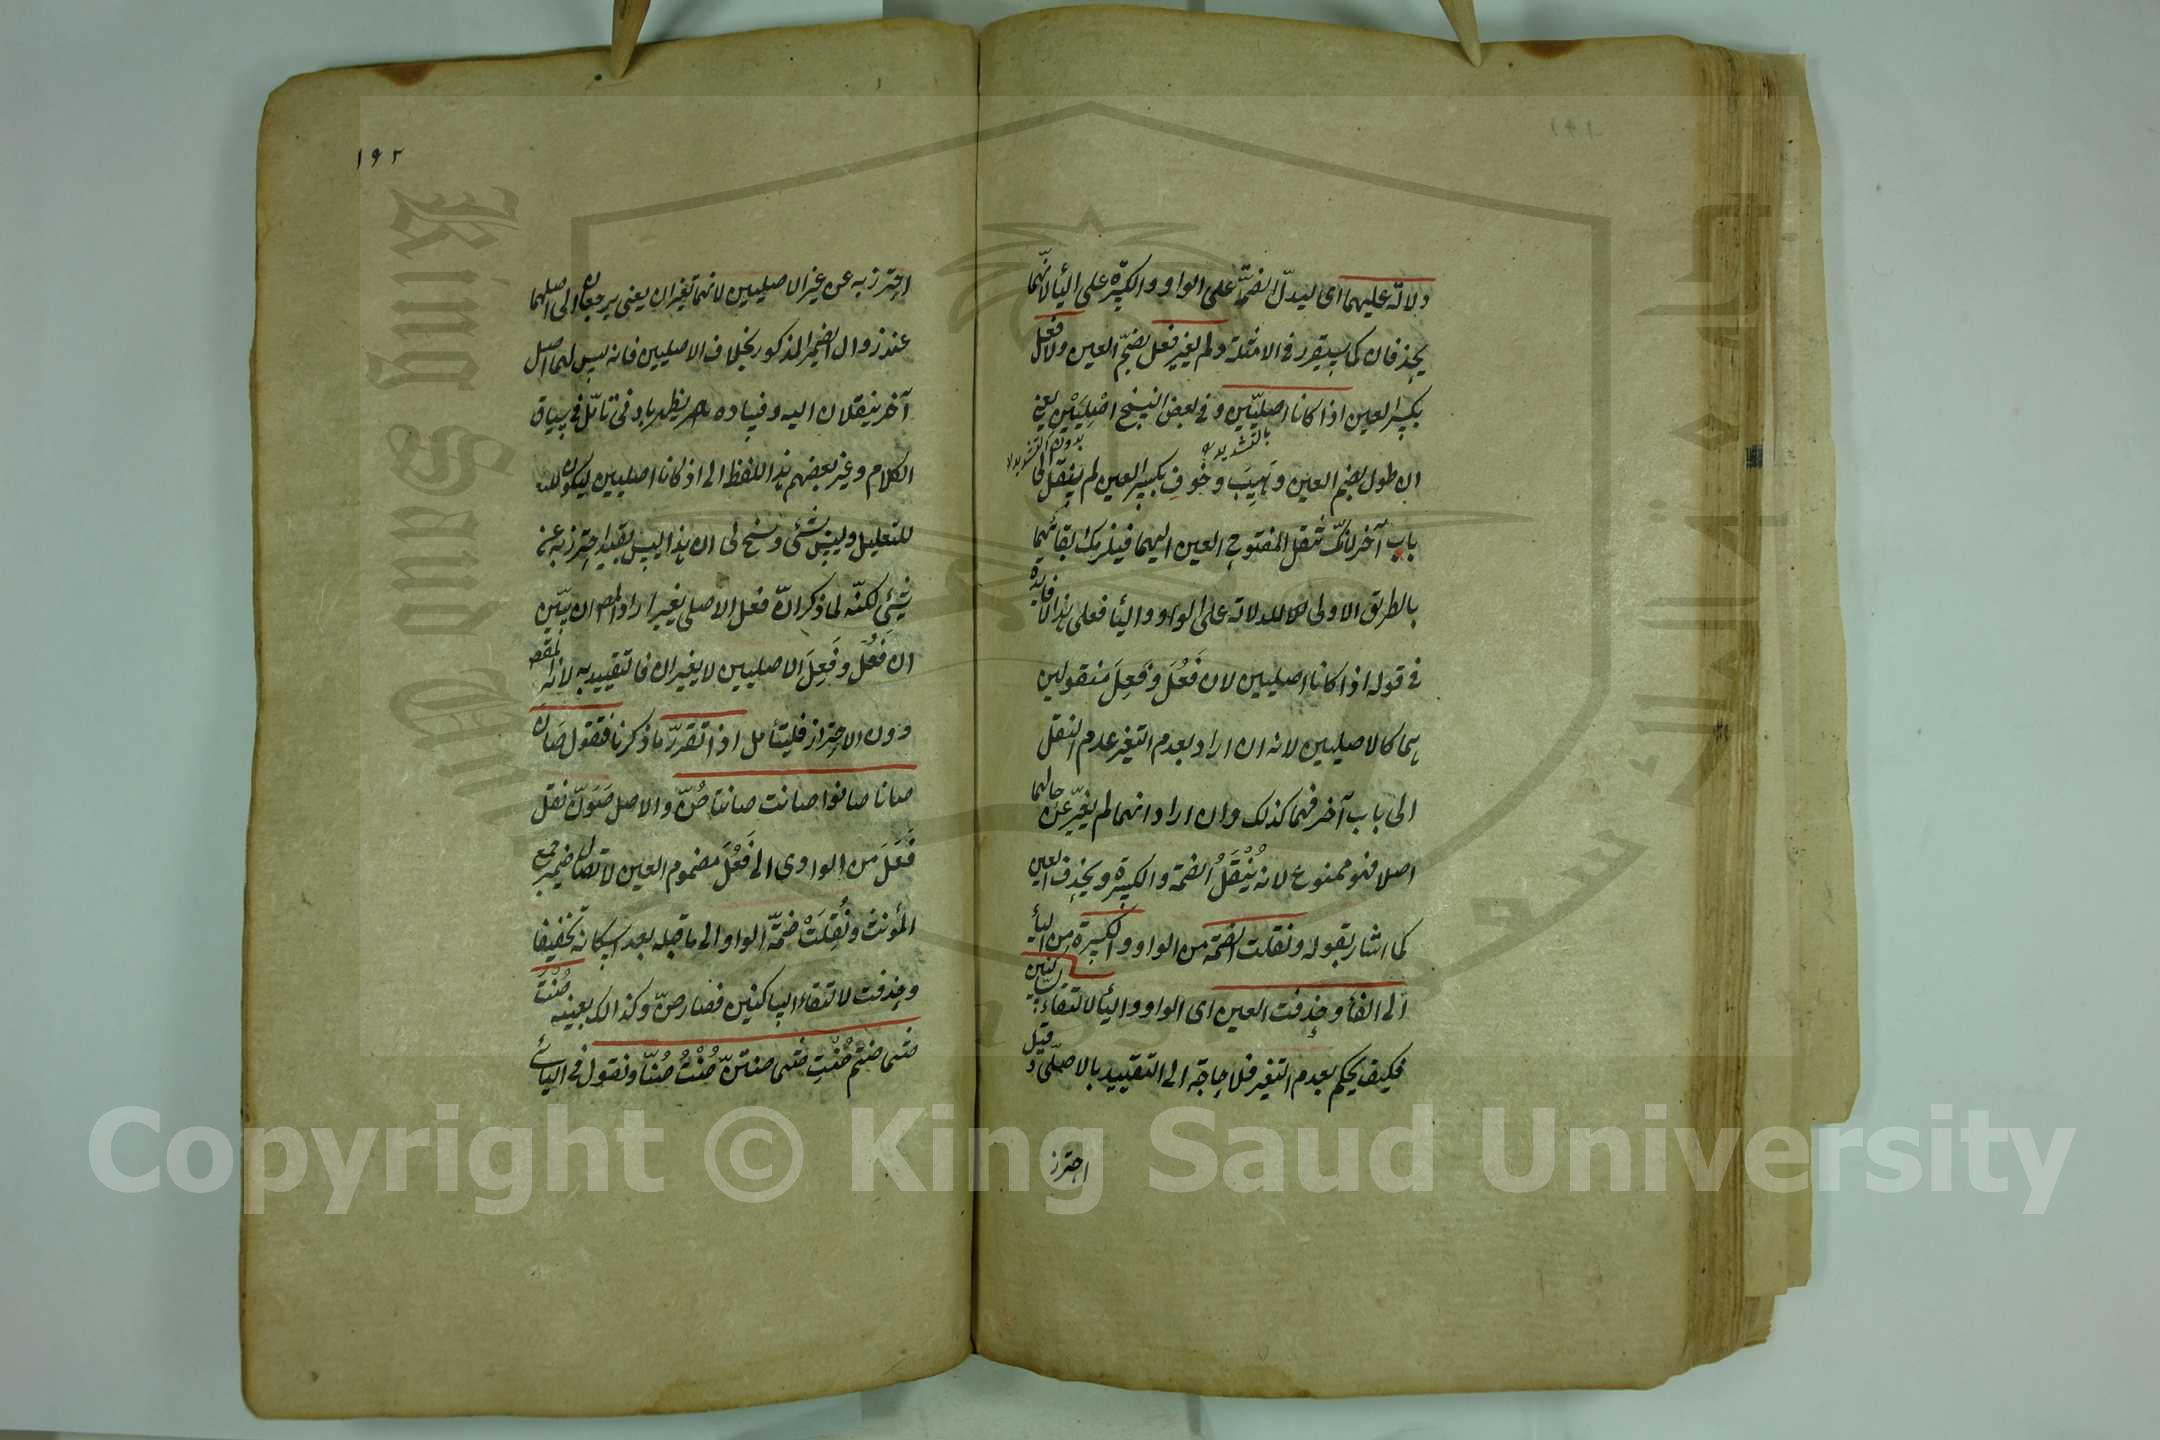 دلالة عليهما اى ليدلّ الضمّة على الواو والكسرة على الياء لانّهما
يحذفان كما سيتقرر فى الامثلة ولم يغير فعل بضمّ العين ولا فعل
بكسر العين اذا كانا اصليّين وفى بعض النسخ اصْلِيَيْن يعنى
بالتشديد
بدون التشديد
ان طول بضم العين وهَيِبَ وخَوِف بكسر العين لم ينقل الى
باب آخر لانّك تنقل المفتوح العين اليهما فيلزمك ابقائهما
بالطريق الاولى للدلالة على الواو والياء فعلى هذا لا فايدة
فى قوله اذا كانا اصليين لان فَعُلَ وفَعِلَ منقولين
هما كالاصليين لانه ان اراد بعدم التغير عدم النقل
الى باب آخر فهما كذلك وان اراد انهما لم يغيّر عن حالهما
اصلا فهو ممنوع لانه يُنْقَلُ الضمة والكسرة ويحذف العين
كما اشار بقوله ونقلت الضمّة من الواو والكسرة من الياء
الى الفاء وحذفت العين اى الواو والياء لالتقاء الساكنين
فكيف يحكم بعدم التغير فلا حاجة الى التقييد بالاصلى وقيل
احترز
١٩٢
احترز به عن غير الاصليين لانهما تغيران يعنى يرجعان الى اصلهما
عند زوال الضمير المذكور بخلاف الاصليين فانه ليس لهما اصل
آخر ينقلان اليه وفساده يظهر بادنى تأمّل فى سياق
الكلام وغير بعضهم هذا اللفظ الى اذ كانا اصليين ليكون
للتعليل وليس بشئى وسنح لى ان هذا ليس بقيد احترز به عن
شئى لكنّه لما ذكر انّ فعل الاصلى يغير اراد المص ان يبيّن
ان فَعُلَ وفَعِلَ الاصليين لا يغيران فالتقييد به لانه المقص
دون الاحتراز فليتأمل اذا تقرّر ما ذكرنا فتقول صَانَ
صانا صانوا صانت صانتا صُنّ والاصل صَوَنّ نقل
فَعَلَ من الواوى الى فَعُلَ مضموم العين لاتصال ضمير جمع
المؤنث ونُقِلَتْ ضمّة الواو الى ما قبله بعد اسكانه تخفيفا
وحذفت لالتقاء الساكنين فصار صنّ وكذالك بعينه صُنْتَ
صنتما صنتم صُنْتِ صنتما صنتنّ صُنْتُ صُنّا وتقول فى اليائى